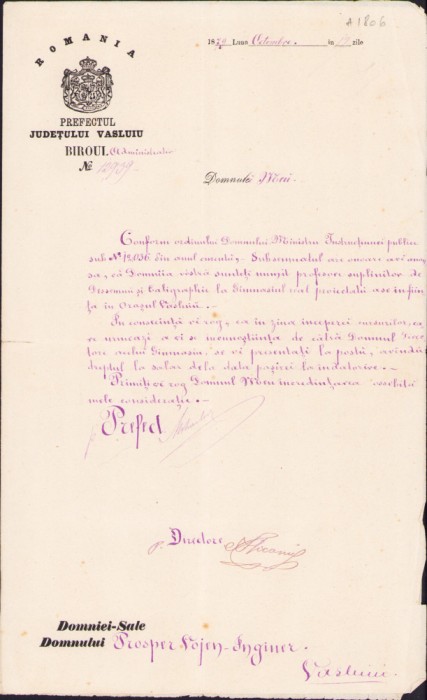 A1806
ROMANIA
187 Luna Octombre. in 19 zile
PREFECTUL
JUDEȚULUI VASLUIU
BIROUL Administrativ
№
Domnule Meu.
Conform ordinului Domnului Ministru Instrucțiunei publice
sub № 12,036 din anul curentŭ, Subsemnatul are onore a vĕ anun
ța, că Domnia vóstră sunteți numitŭ profesor suplinitor de
Desemnŭ și Caligraphie la Gimnasiul real proiectatŭ a se înfiin
ța în Orașul Vasluiŭ.
In consecință vĕ rog, ca în ziua începerei cursurilor, ce
ce urmează a vi se incunoștiința de cătră Domnul Direc
tore acelui Gimnasiu, se vĕ presentați la postŭ, avĕndŭ
dreptul la salar dela data pășirei la indatorire.
Primiți vĕ rog Domnul Meu incredințarea osebitei
mele considerații.
Prefect
p. Directore
Domniei-Sale
Domnului Prosper Vojen-Inginer.
Vasluiŭ